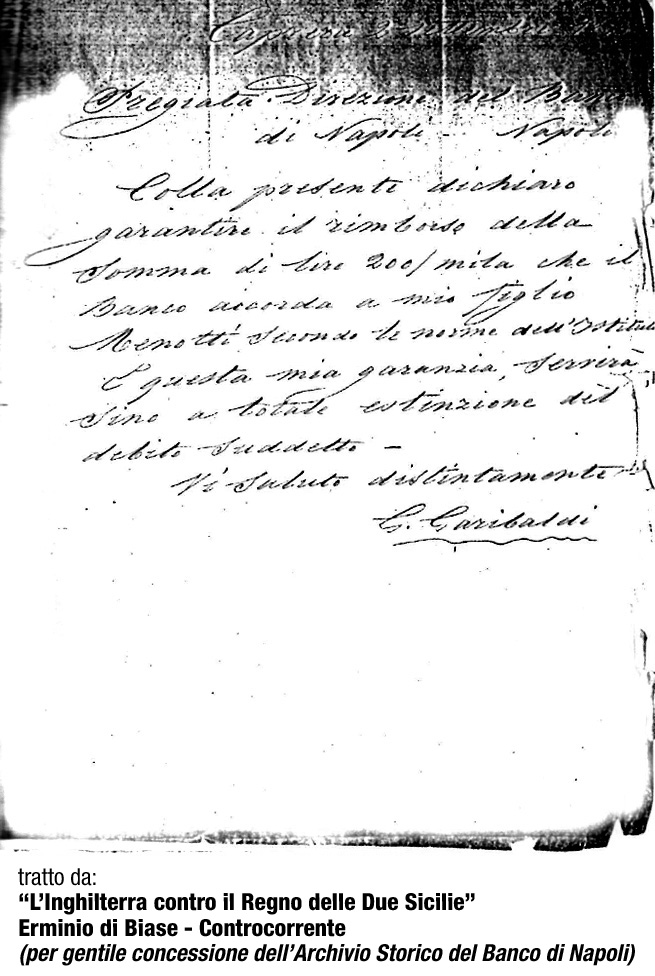 Caprera 3
Pregiata Direzione del Banco
di Napoli - Napoli
Colla presente dichiaro
garantire il rimborso della
Somma di lire 200/mila che il
Banco accorda a mio figlio
Menotti secondo le norme dell'Istituto
E questa mia garanzia, servirà
sino a totale estinzione del
debito suddetto -
Vi saluto distintamente
G. Garibaldi
tratto da:
“L’Inghilterra contro il Regno delle Due Sicilie”
Erminio di Biase - Controcorrente
(per gentile concessione dell’Archivio Storico del Banco di Napoli)